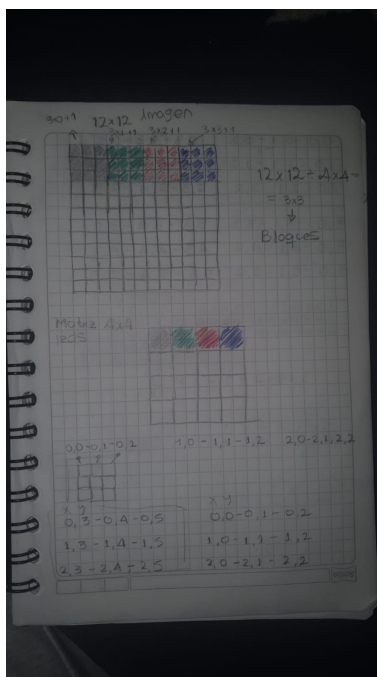 3x0+1 12x12 Imagen
3x1+1 3x2+1 3x3+1
12x12 ÷ 4x4 =
= 3x3
Bloques
Matriz 4x4
0,0-0,1-0,2 1,0-1,1-1,2 2,0-2,1,2,2
x y
0,3-0,4-0,5
1,3-1,4-1,5
2,3-2,4-2,5
x y
0,0-0,1-0,2
1,0-1,1-1,2
2,0-2,1-2,2